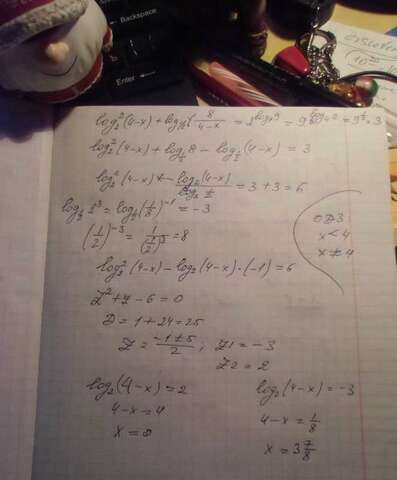 Backspace
Enter
log₂²(4-x) + log½(8/(4-x)) = 2^(log₄9) = 9^(log₄2) = 9^½ = 3
log₂²(4-x) + log½ 8 - log½(4-x) = 3
log₂²(4-x) - log₂(4-x)/log₂ ½ = 3 + 3 = 6
log½ 2³ = log½(⅛)⁻¹ = -3
(1/2)⁻³ = 1/(½)³ = 8
ОДЗ
x < 4
x ≠ 4
log₂²(4-x) - log₂(4-x)·(-1) = 6
Z² + Z - 6 = 0
D = 1 + 24 = 25
Z = (-1±5)/2 ; Z1 = -3
Z2 = 2
log₂(4-x) = 2
4-x = 4
x = 0
log₂(4-x) = -3
4-x = 1/8
x = 3 7/8